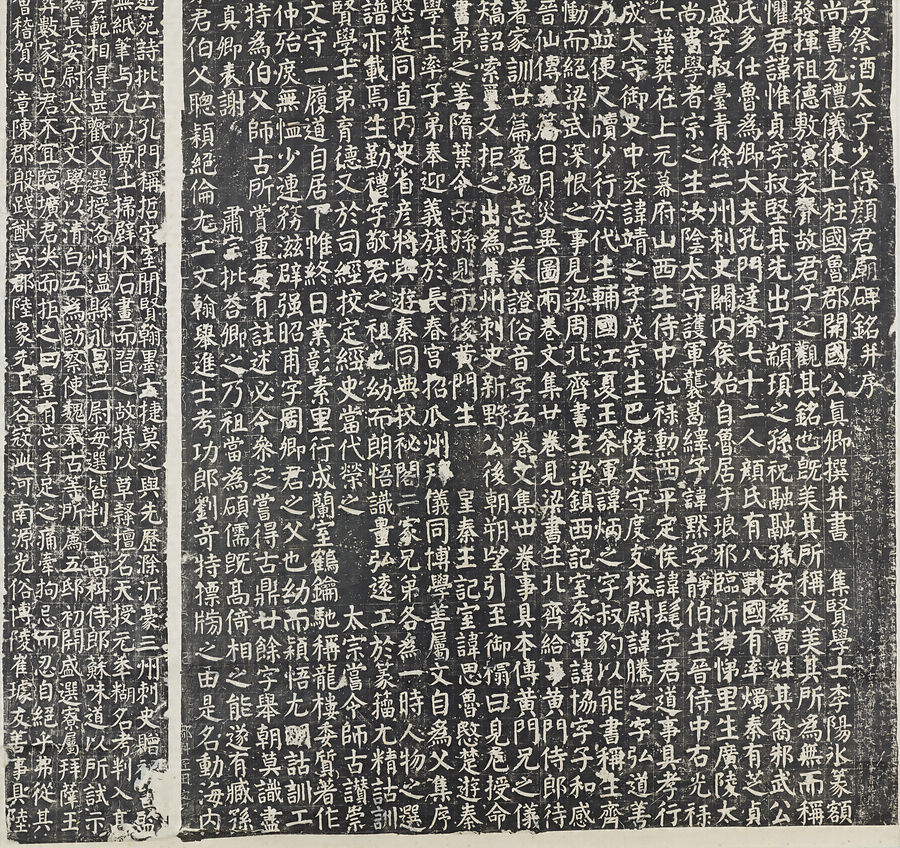 子祭酒太子少保顏君廟碑銘并序
尚書充禮儀使上柱國魯郡開國公真卿撰并書 集賢學士李陽冰篆額
發揮祖德敷演家聲故君子之觀其銘也既美其所稱又美其所為無而稱
懼君諱惟貞字叔堅其先出于顓頊之孫祝融融孫安為曹姓其裔邾武公
氏多仕魯為卿大夫孔門達者七十二人顏氏有八戰國有率燭秦有芝貞
盛字叔臺青徐二州刺史關內侯始自魯居于琅邪臨沂孝悌里生廣陵太
尚書學者宗之生汝陰太守護軍襲葛繹子諱默字靜伯生晉侍中右光祿
七葉葬在上元幕府山西生侍中光祿勳西平定侯諱髦字君道事具孝行
成太守御史中丞諱靖之字茂宗生巴陵太守度支校尉諱騰之字弘道善
力並便尺牘少行於代生輔國江夏王參軍諱炳之字叔豹以能書稱生齊
慟而絕梁武深恨之事見梁周北齊書生梁鎮西記室參軍諱協字子和感
晉仙傳五篇日月災異圖兩卷文集廿卷見梁書生北齊給事黃門侍郎待
著家訓廿篇冤魂志三卷證俗音字五卷文集卅卷事具本傳黃門兄之儀
矯詔索璽又拒之出為集州刺史新野公後朝朔望引至御榻曰見危授命
書弟之善隋葉令子孫見下後黃門生 皇秦王記室諱思魯愍楚遊秦
學士率子弟奉迎義旗於長春宮招瓜州拜儀同博學善屬文自為父集序
愍楚同直內史省彥將與遊秦同典校秘閣二家兄弟各為一時人物之選
譜亦載焉生勤禮字敬君之祖也幼而朗悟識量弘遠工於篆籀尤精詁訓
賢學士弟育德又於司經校定經史當代榮之 太宗嘗令師古讚崇
文守一履道自居下帷終日業彰素里行成蘭室鶴鑰馳稱龍樓委質著作
仲殆庶無恤少連務滋辟强昭甫字周卿君之父也幼而穎悟尤明詁訓工
特為伯父師古所賞重每有註述必令參定嘗得古鼎廿餘字舉朝莫識盡
真卿表謝 肅宗批荅卿之乃祖當為碩儒既高倚相之能遂有臧孫
君伯父聰穎絕倫尤工文翰舉進士考功郎劉奇特標牓之由是名動海內
苑詩批云孔門稱哲宋室聞賢翰墨之捷莫之與先歷滁沂豪三州刺史贈秘書監
無紙筆与兄以黃土掃壁木石畫而習之故特以草隸擅名天授元年糊名考判入
有範相得甚歡又選授洛州溫縣永昌二尉每選皆判入高科侍郎蘇味道以所試示
為長安尉太子文學以清白五為訪察使魏奉古等所薦五邸初開盛選寮屬拜薛王
算數家占君不宜臨壙君哭而拒之曰豈有忘手足之痛牽拘忌而忍自絕乎弗從其
會稽賀知章陳郡殷踐猷吳郡陸象先上谷寇泚河南源光俗博陵崔璩友善事具陸